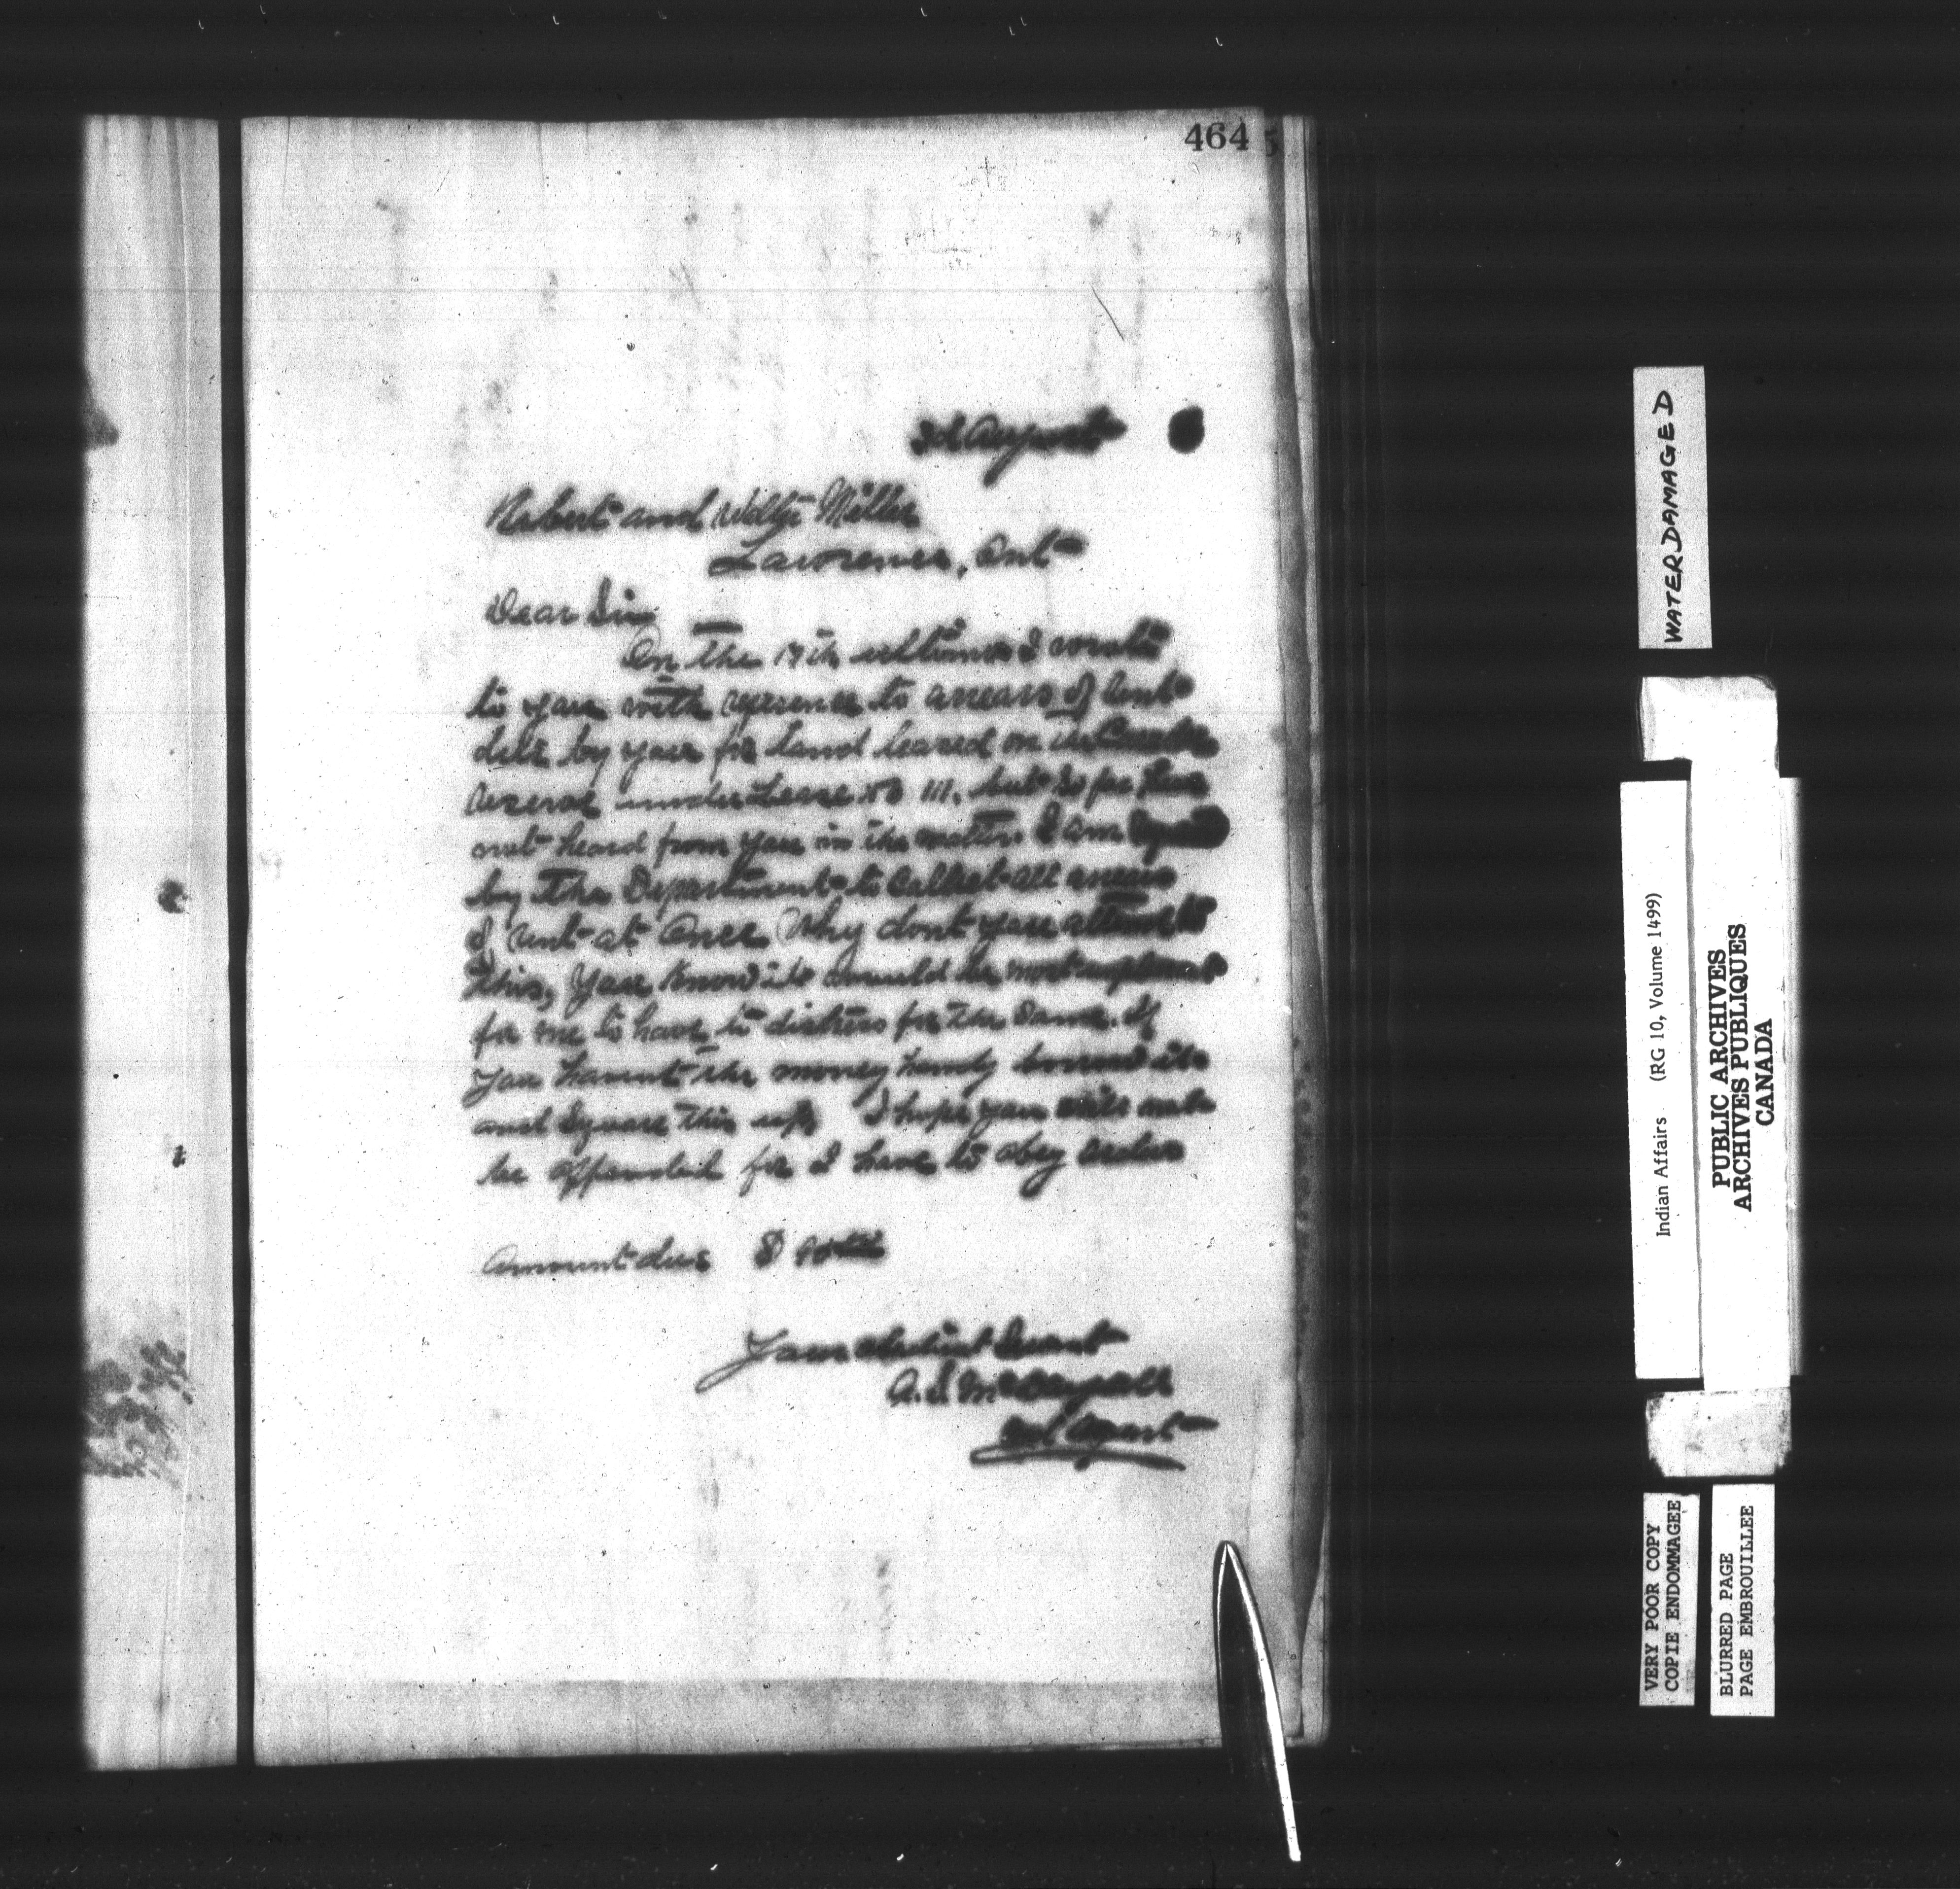 464
3d August
Robert and Walter Miller
Lawrence, Ont
Dear Sir
On the 19th ultimo I wrote
to you with reference to arrears of rent
due by you for land leased on the
Reserve under Lease No 111. but so far have
not heard from you in the matter. I am
by the Department to collect all arrears
of rent at once. Why dont you attend to
this, you know it would be most unpleasant
for me to have to distress for the same. If
you havent the money handy borrow it
and square this up. I hope you will not
be offended for I have to obey orders
Amount due $
Your obedient Servant
A. S. McDougall
Ind Agent
WATERDAMAGED
Indian Affairs (RG 10, Volume 1499)
PUBLIC ARCHIVES
ARCHIVES PUBLIQUES
CANADA
VERY POOR COPY
COPIE ENDOMMAGEE
BLURRED PAGE
PAGE EMBROUILLEE